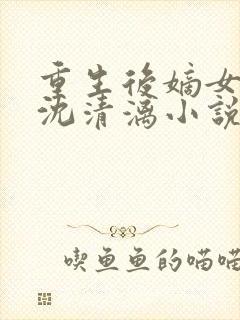 重生後嫡女
沈清漓小說
喫魚魚的喵喵